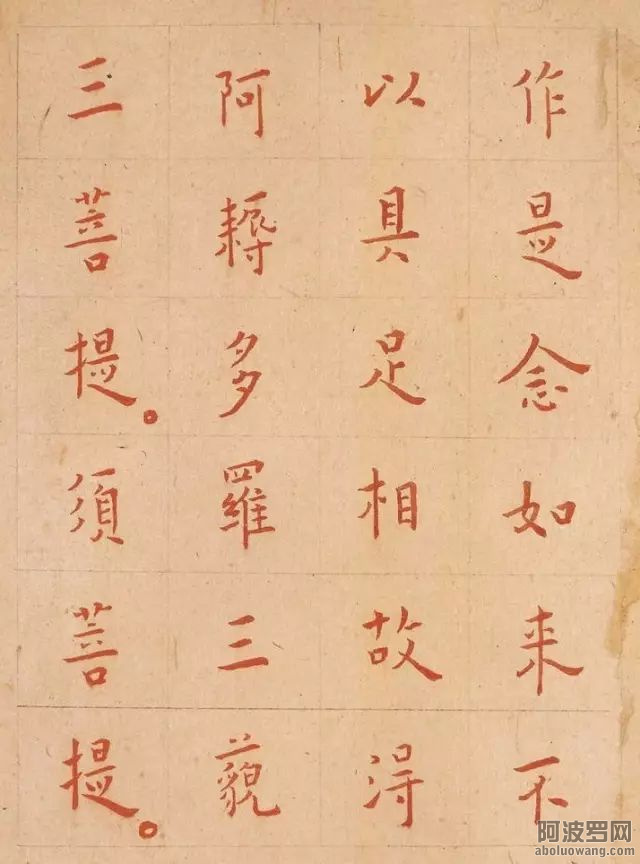 作是念如来不
以具足相故得
阿耨多羅三藐
三菩提。須
菩提。
阿波罗网
aboluowang.com